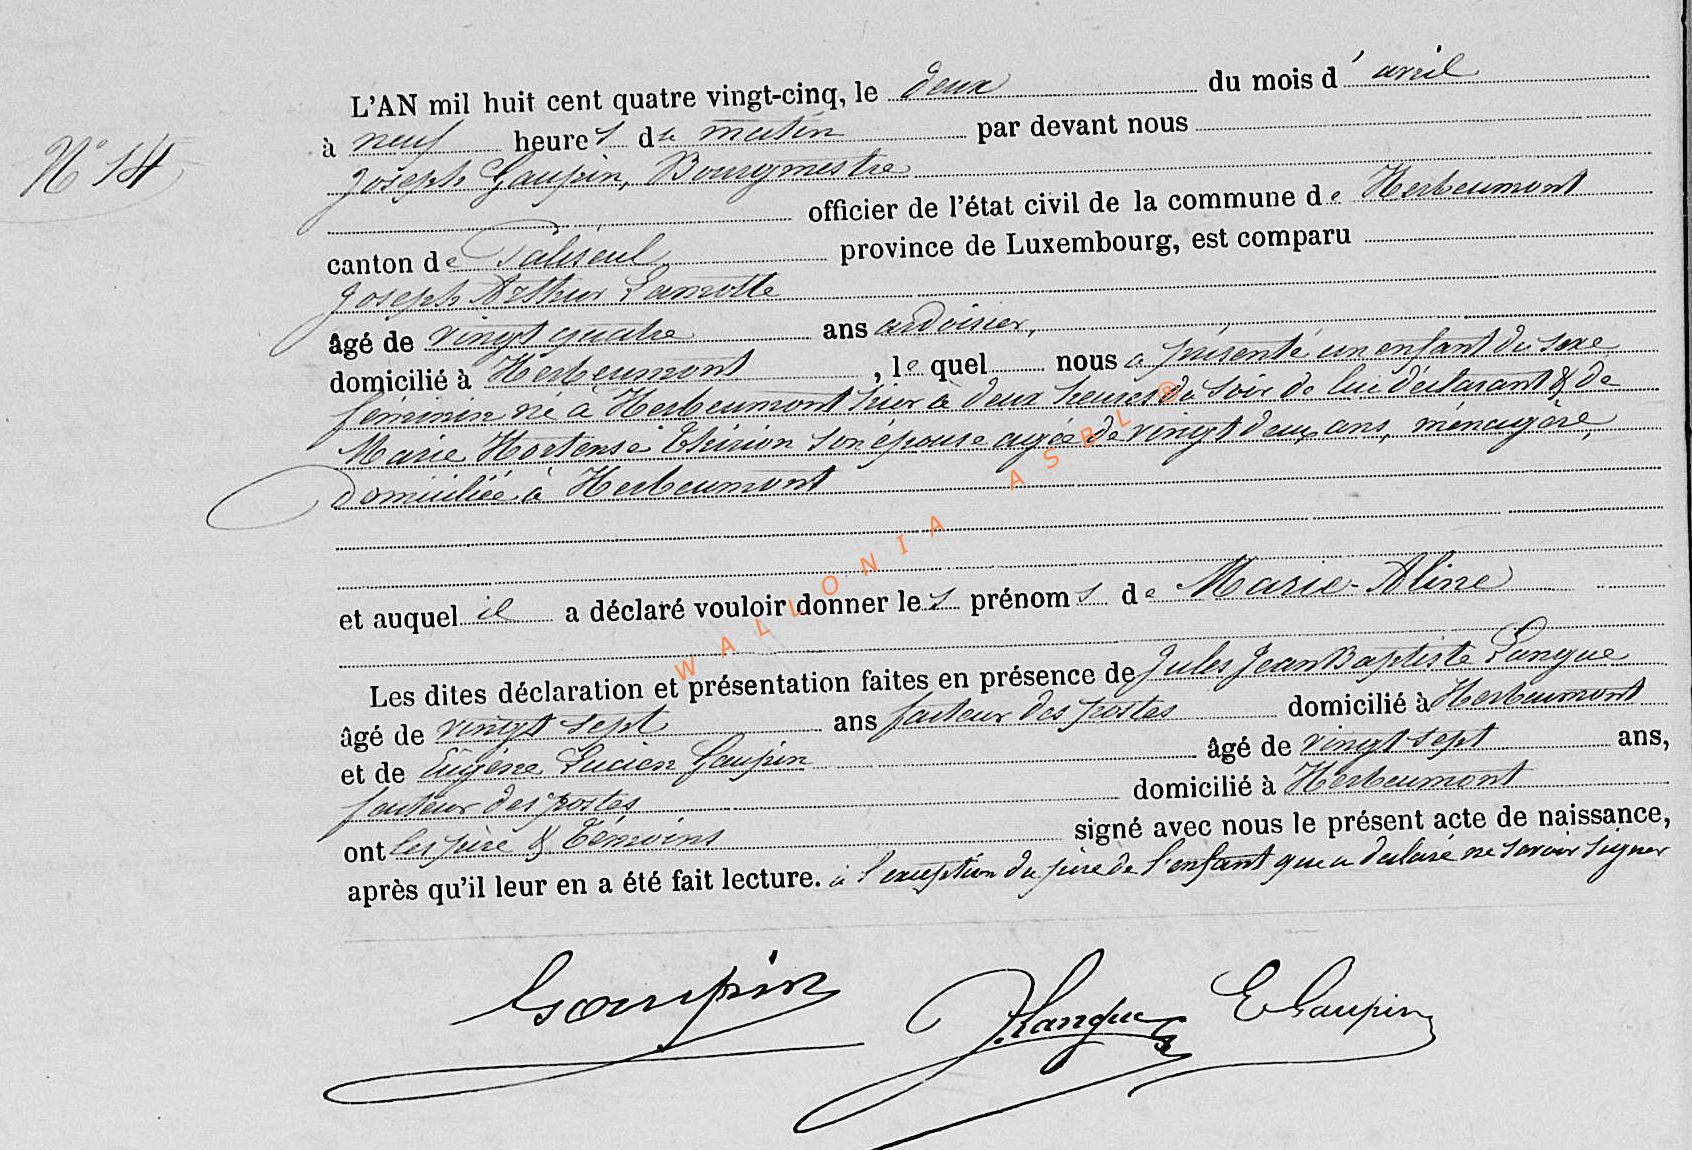 L'AN mil huit cent quatre vingt-cinq, le deux du mois d'avril
N° 14
à neuf heures du matin par devant nous
Joseph Gaupin, Bourgmestre
officier de l'état civil de la commune de Herbeumont
canton de Paliseul province de Luxembourg, est comparu
Joseph Arthur Lamotte
âgé de vingt quatre ans ardoisier,
domicilié à Herbeumont, le quel nous a présenté un enfant du sexe
féminin né à Herbeumont hier à deux heures du soir de lui déclarant & de
Marie Hortense Thirion son épouse agée de vingt deux ans, ménagère,
domiciliée à Herbeumont
et auquel il a déclaré vouloir donner les prénoms de Marie-Aline
Les dites déclaration et présentation faites en présence de Jules Jean Baptiste Langue
âgé de vingt sept ans facteur des postes domicilié à Herbeumont
et de Eugène Lucien Gaupin âgé de vingt sept ans,
facteur des postes domicilié à Herbeumont
ont les père & témoins signé avec nous le présent acte de naissance,
après qu'il leur en a été fait lecture. à l'exception du père de l'enfant que a déclaré ne savoir signer
Gaupin J. Langue E Gaupin
WALLONIA ASBL ®